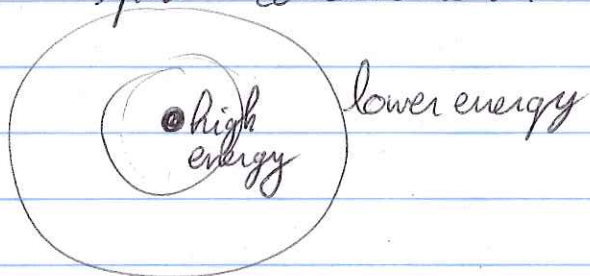 high
energy
lower energy